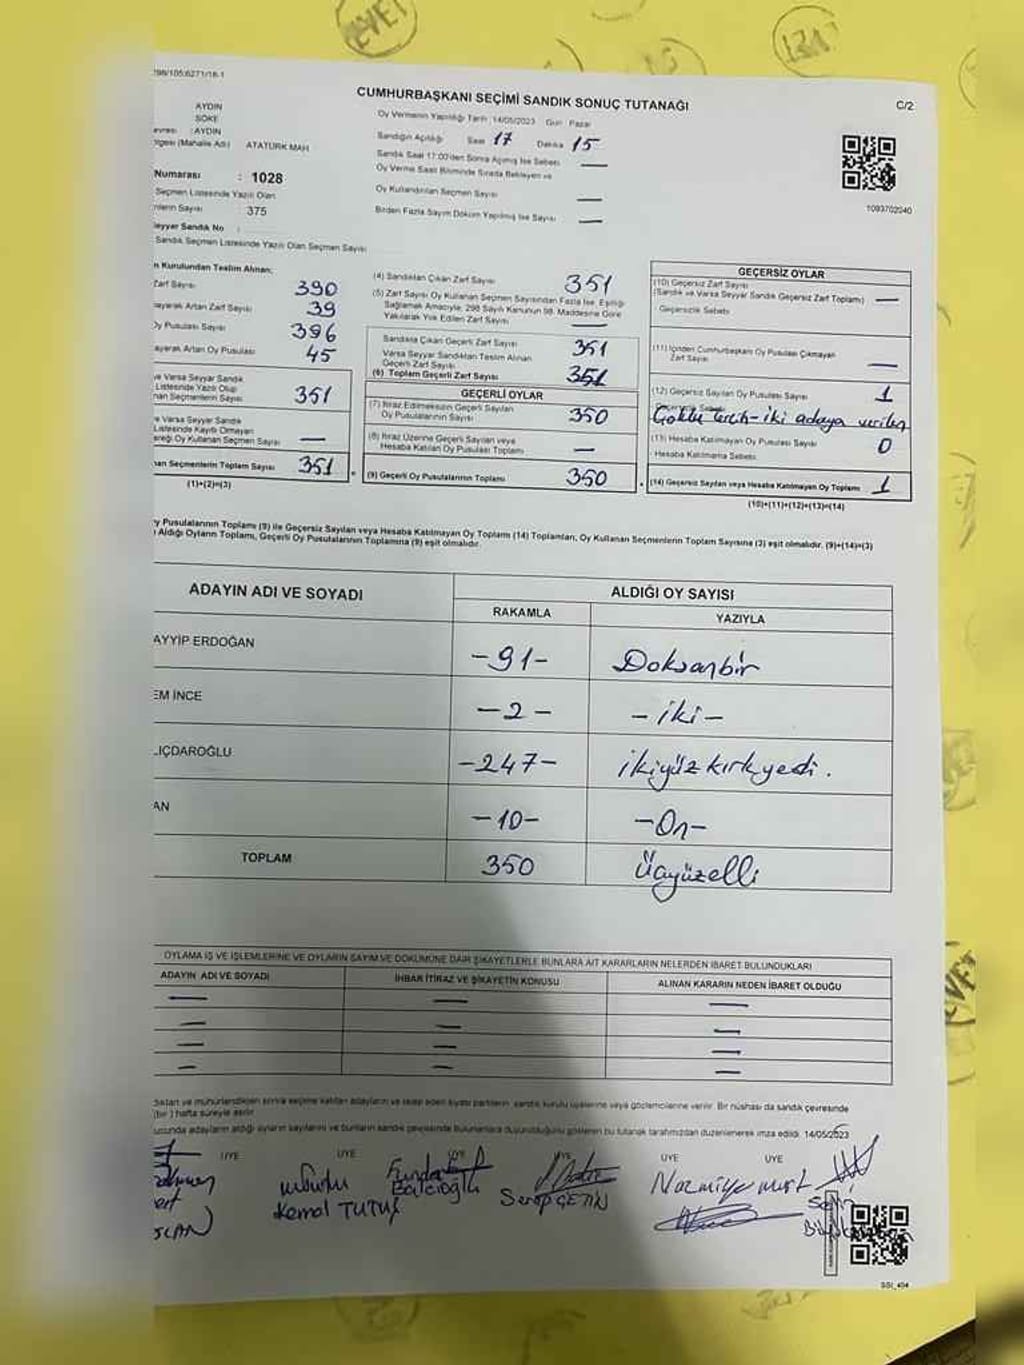 EVET
298/105:6271/16-1
CUMHURBAŞKANI SEÇİMİ SANDIK SONUÇ TUTANAĞI
C/2
AYDIN
SÖKE
AYDIN
ATATÜRK MAH
Numarası : 1028
Seçmen Listesinde Yazılı Olan
375
eyyar Sandık No :
Sandık Seçmen Listesinde Yazılı Olan Seçmen Sayısı
Oy Vermenin Yapıldığı Tarih 14/05/2023 Gün Pazar
Sandığın Açıldığı Saat 17 Dakika 15
Sandık Saat 17:00'den Sonra Açılmış İse Sebebi —
Oy Verme Saati Bitiminde Sırada Bekleyen ve
Oy Kullandırılan Seçmen Sayısı —
Birden Fazla Sayım Döküm Yapılmış İse Sayısı —
1093702040
n Kurulundan Teslim Alınan;
Zarf Sayısı 390
ayarak Artan Zarf Sayısı 39
Oy Pusulası Sayısı 396
ayarak Artan Oy Pusulası 45
ve Varsa Seyyar Sandık
Listesinde Yazılı Olup
nan Seçmenlerin Sayısı 351
e Varsa Seyyar Sandık
Listesinde Kayıtlı Olmayan
ereği Oy Kullanan Seçmen Sayısı —
nan Seçmenlerin Toplam Sayısı 351
(1)+(2)=(3)
(4) Sandıktan Çıkan Zarf Sayısı 351
(5) Zarf Sayısı Oy Kullanan Seçmen Sayısından Fazla İse, Eşitliği
Sağlamak Amacıyla, 298 Sayılı Kanunun 98. Maddesine Göre
Yakılarak Yok Edilen Zarf Sayısı —
Sandıkta Çıkan Geçerli Zarf Sayısı 351
Varsa Seyyar Sandıktan Teslim Alınan
Geçerli Zarf Sayısı
(6) Toplam Geçerli Zarf Sayısı 351
GEÇERLİ OYLAR
(7) İtiraz Edilmeksizin Geçerli Sayılan
Oy Pusulalarının Sayısı 350
(8) İtiraz Üzerine Geçerli Sayılan veya
Hesaba Katılan Oy Pusulası Toplamı —
(9) Geçerli Oy Pusulalarının Toplamı 350
GEÇERSİZ OYLAR
(10) Geçersiz Zarf Sayısı
(Sandık ve Varsa Seyyar Sandık Geçersiz Zarf Toplamı) —
Geçersizlik Sebebi
(11) İçinden Cumhurbaşkanı Oy Pusulası Çıkmayan
Zarf Sayısı —
(12) Geçersiz Sayılan Oy Pusulası Sayısı 1
iki adaya verilen
(13) Hesaba Katılmayan Oy Pusulası Sayısı 0
Hesaba Katılmama Sebebi
(14) Geçersiz Sayılan veya Hesaba Katılmayan Oy Toplamı 1
(10)+(11)+(12)+(13)=(14)
y Pusulalarının Toplamı (9) ile Geçersiz Sayılan veya Hesaba Katılmayan Oy Toplamı (14) Toplamları, Oy Kullanan Seçmenlerin Toplam Sayısına (3) eşit olmalıdır. (9)+(14)=(3)
Aldığı Oyların Toplamı, Geçerli Oy Pusulalarının Toplamına (9) eşit olmalıdır.
ADAYIN ADI VE SOYADI
ALDIĞI OY SAYISI
RAKAMLA YAZIYLA
AYYİP ERDOĞAN -91- Doksanbir
EM İNCE -2- -iki-
LIÇDAROĞLU -247- ikiyüzkırkyedi.
AN -10- -On-
TOPLAM 350 Üçyüzelli
OYLAMA İŞ VE İŞLEMLERİNE VE OYLARIN SAYIM VE DÖKÜMÜNE DAİR ŞİKAYETLERLE BUNLARA AİT KARARLARIN NELERDEN İBARET BULUNDUKLARI
ADAYIN ADI VE SOYADI İHBAR İTİRAZ VE ŞİKAYETİN KONUSU ALINAN KARARIN NEDEN İBARET OLDUĞU
— — —
— — —
— — —
— — —
sandık kurulu üyelerine veya gözlemcilerine verilir. Bir nüshası da sandık çevresinde
(bir) hafta süreyle asılır
bu tutanak tarafımızdan düzenlenerek imza edildi. 14/05/2023
ÜYE ÜYE ÜYE ÜYE ÜYE ÜYE
Funda
Balcıoğlu
Kemal TUTUK
Serap ÇETİN
Nazmiye
SSİ_404